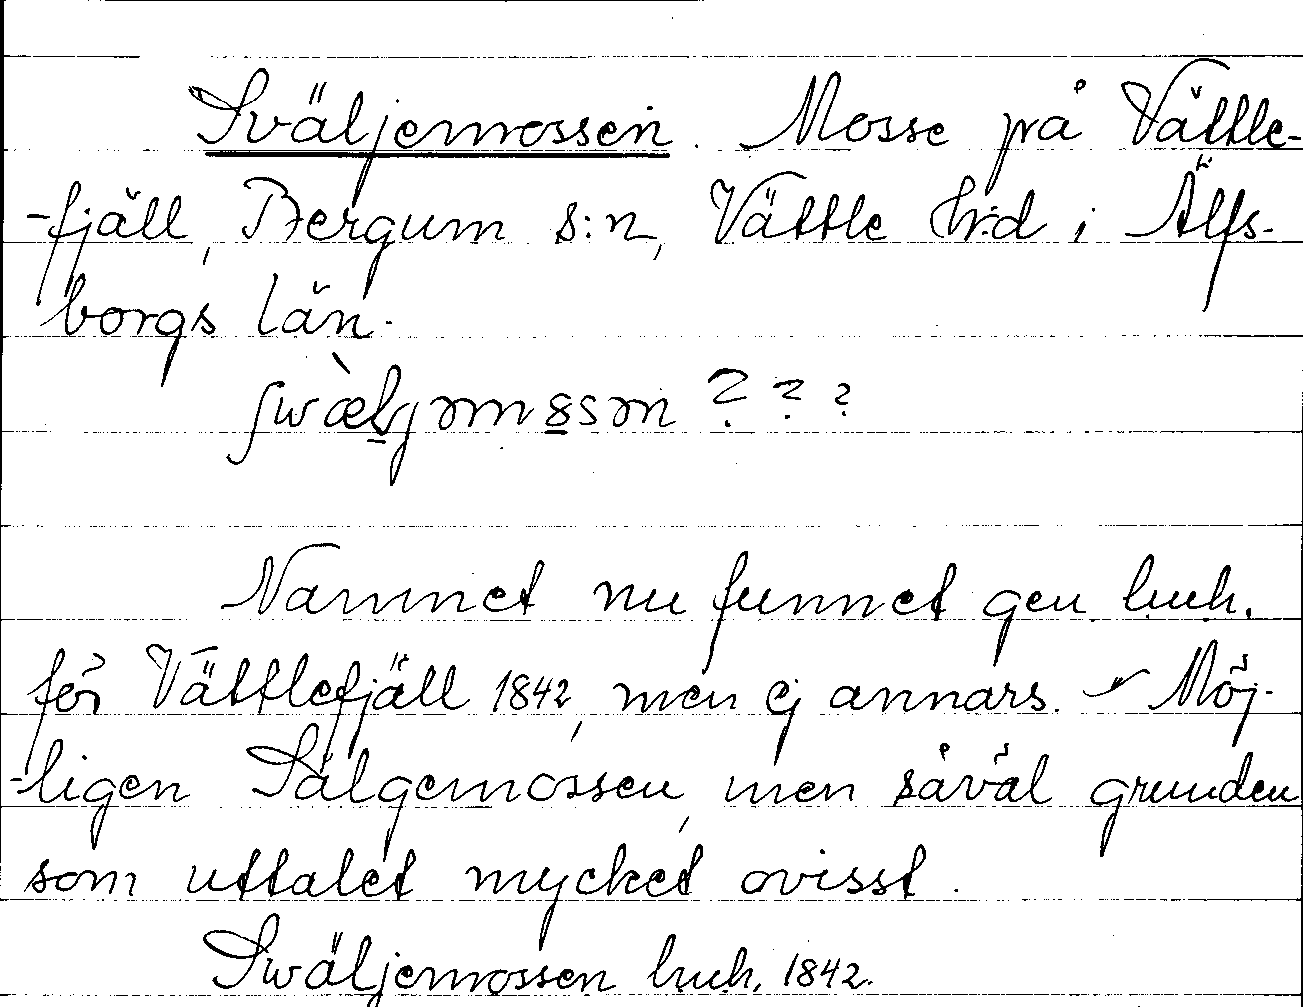 Sväljemossen. Mosse på Vättle-
-fjäll, Bergum s:n, Vättle hrd i Älfs-
borgs län.
? ? ?
Namnet nu funnet gen huh.
för Vättlefjäll 1842, men ej annars. Möj-
-ligen Sälgemossen, men såväl grunden
som uttalet mycket ovisst.
Swäljemossen huh. 1842.